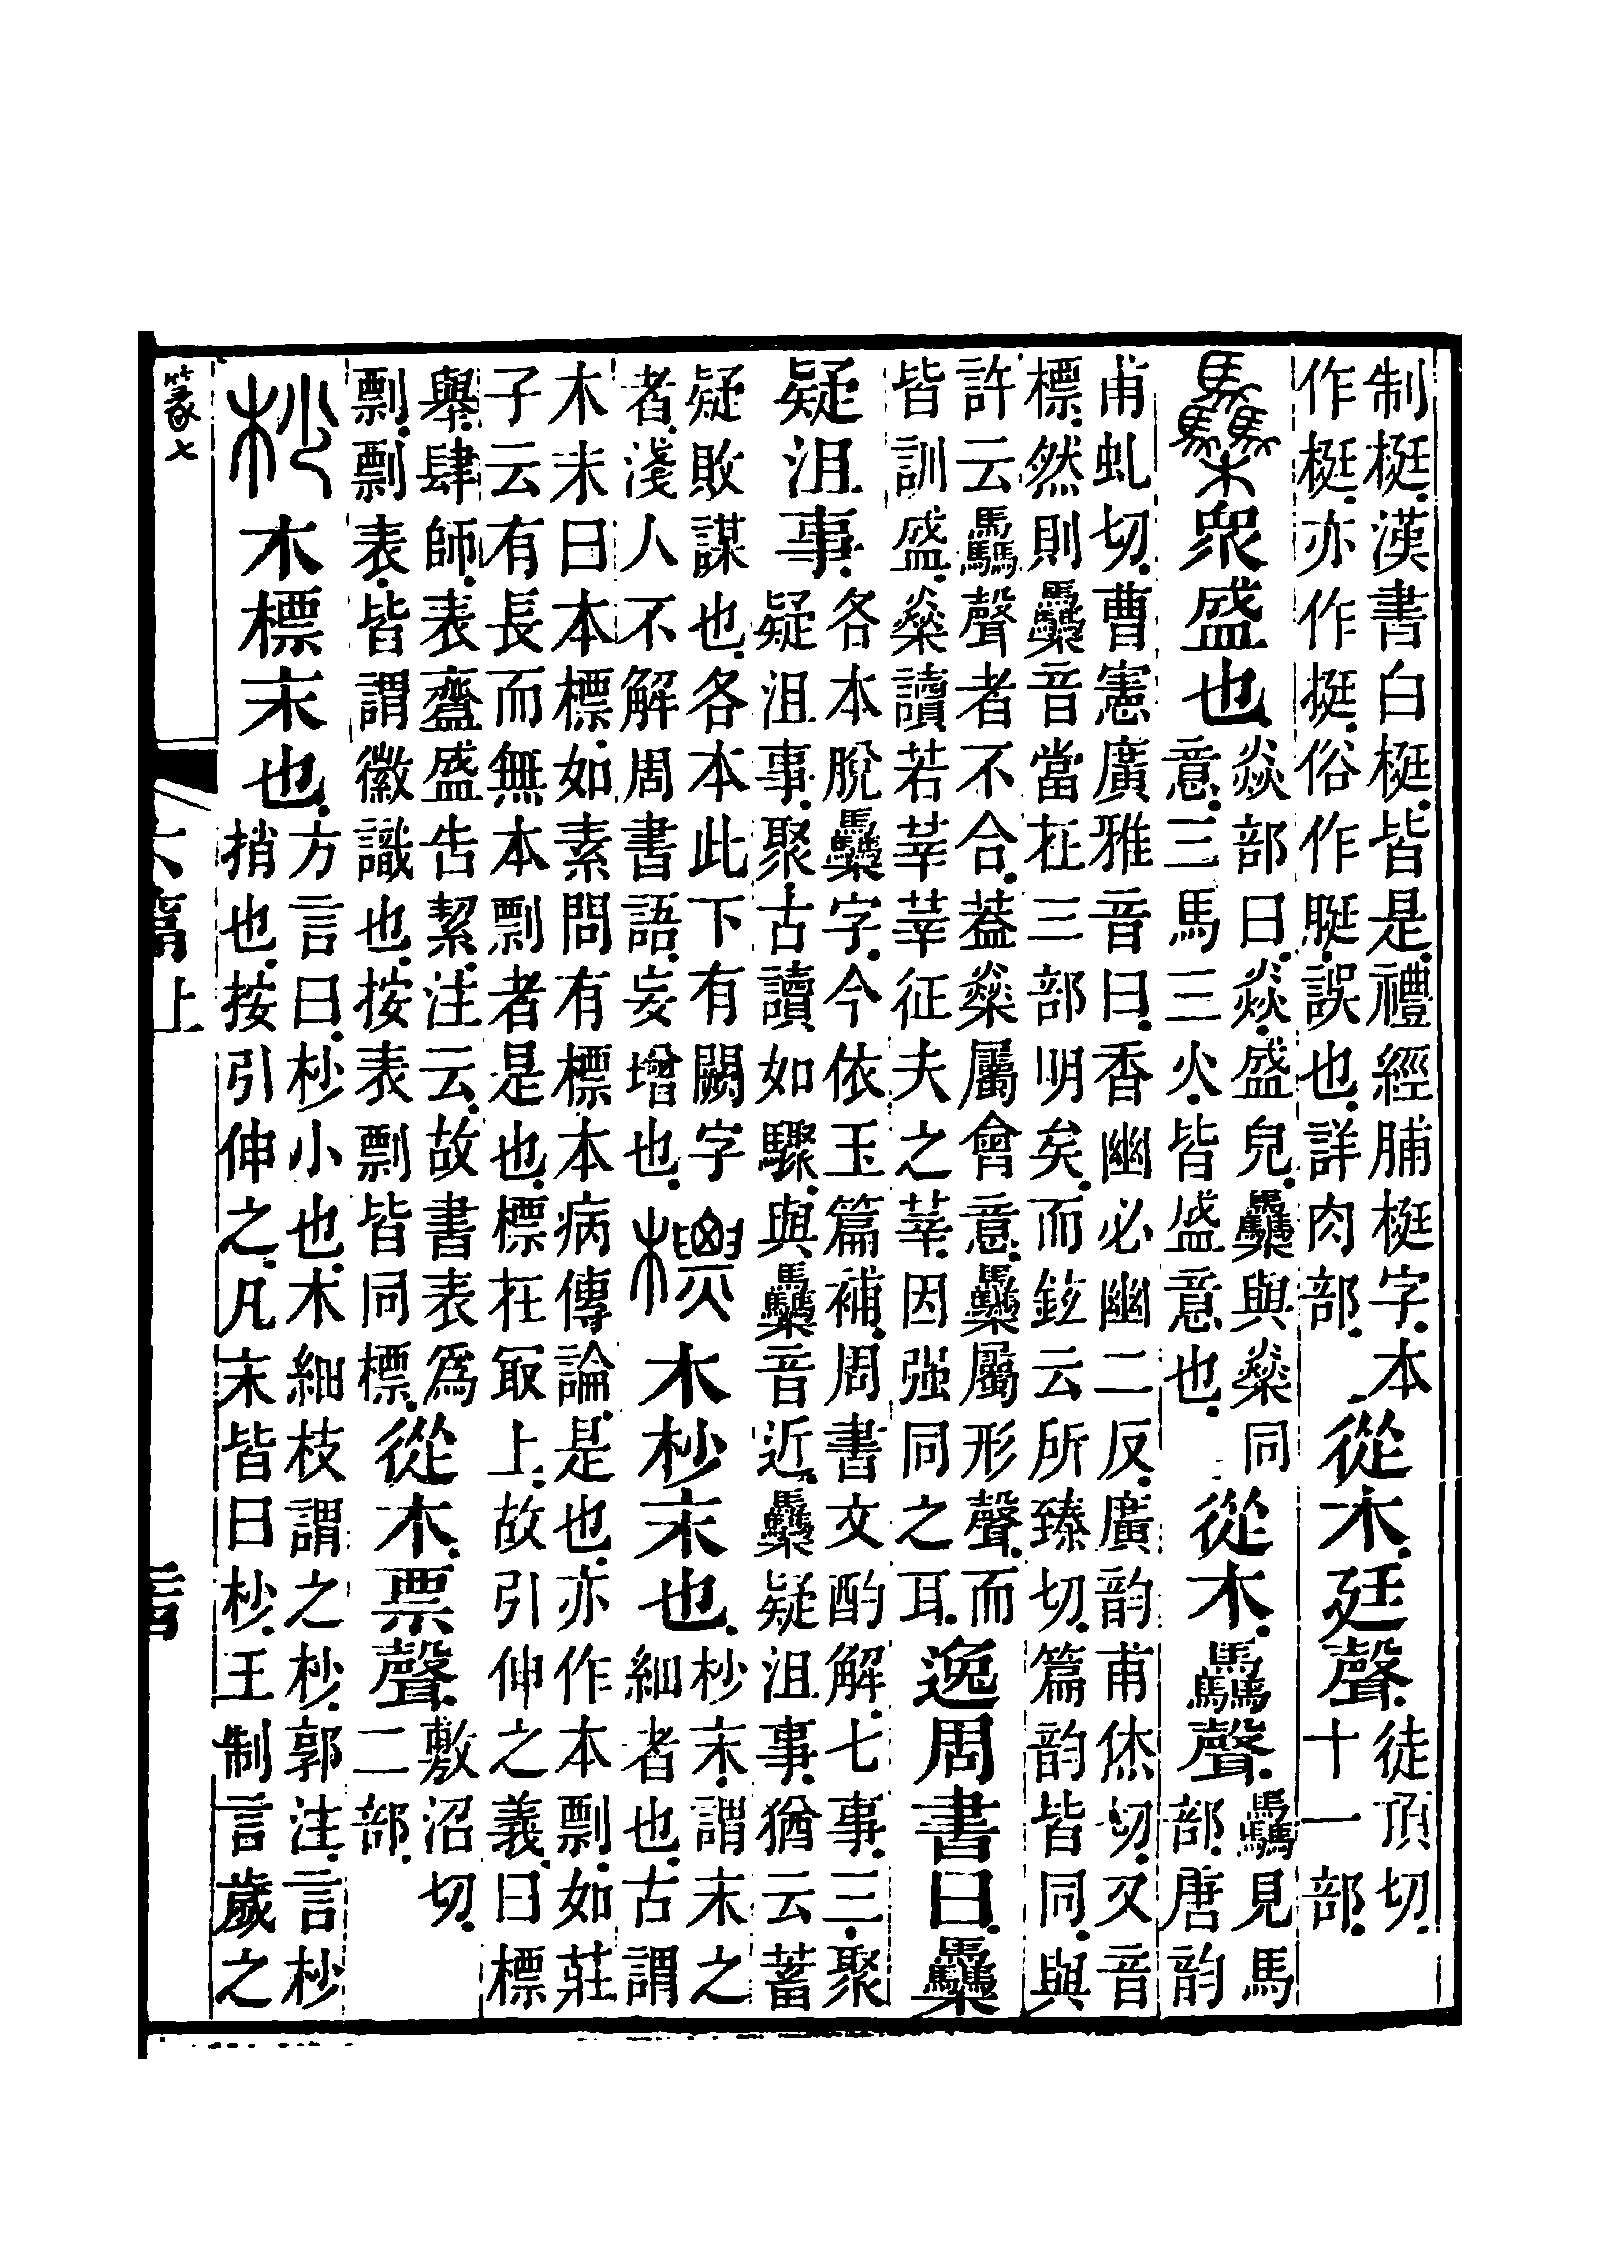 制梃漢書白梃皆是禮經脯梃字本
作梃亦作挺俗作脡誤也詳肉部
從木廷聲
徒頂切
十一部
𣡗眾盛也
焱部曰焱盛皃𣡗與燊同
意三馬三火皆盛意也
從木驫聲
驫見馬
部唐韵
甫虬切曹憲廣雅音曰香幽必幽二反廣韵甫烋切又音
標然則𣡗音當在三部明矣而鉉云所臻切篇韵皆同與
許云驫聲者不合葢燊屬會意𣡗屬形聲而
皆訓盛燊讀若莘莘征夫之莘因强同之耳
逸周書曰𣡗
疑沮事
各本脫𣡗字今依玉篇補周書文酌解七事三聚
疑沮事聚古讀如驟與𣡗音近𣡗疑沮事猶云蓄
疑敗謀也各本此下有闕字
者淺人不解周書語妄增也
標木杪末也
杪末謂末之
細者也古謂
木末曰本標如素問有標本病傳論是也亦作本剽如莊
子云有長而無本剽者是也標在冣上故引伸之義曰標
舉肆師表齍盛告絜注云故書表爲
剽剽表皆謂徽識也按表剽皆同標
從木票聲
敷沼切
二部
杪木標末也
方言曰杪小也木細枝謂之杪郭注言杪
捎也按引伸之凡末皆曰杪王制言歲之
篆七
六篇上